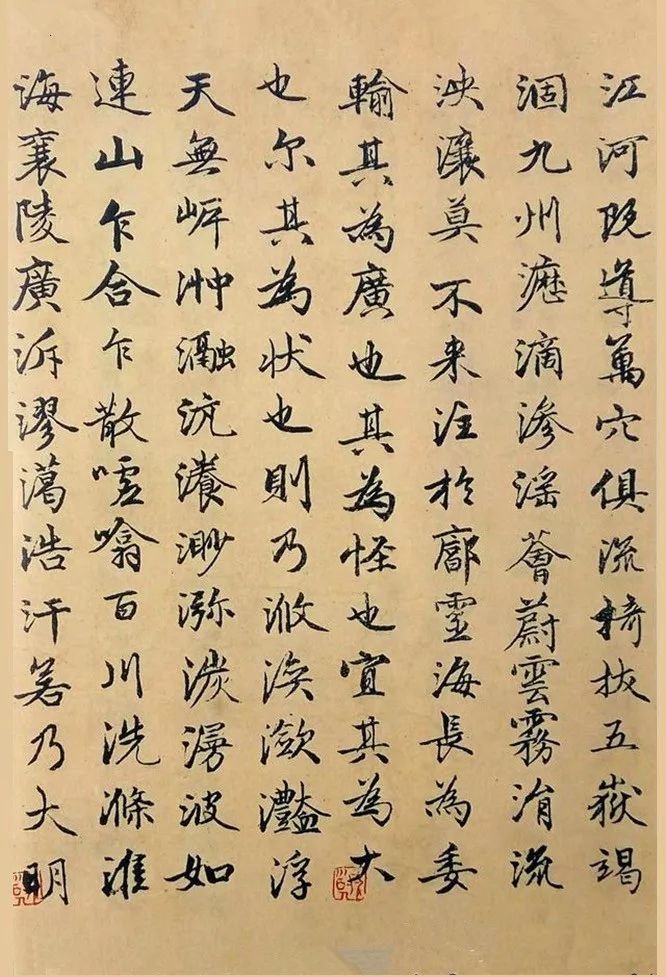 江河既導萬穴俱流掎拔五嶽竭
涸九州瀝滴滲淫薈蔚雲霧涓流
泱瀼莫不来注於廓靈海長為委
輸其為廣也其為怪也宜其為大
也尔其為状也則乃浟湙瀲灩浮
天無岸沖瀜沆瀁渺弥湠漫波如
連山乍合乍散噓噏百川洗滌淮
海襄陵廣泝漻㶀浩汗若乃大明